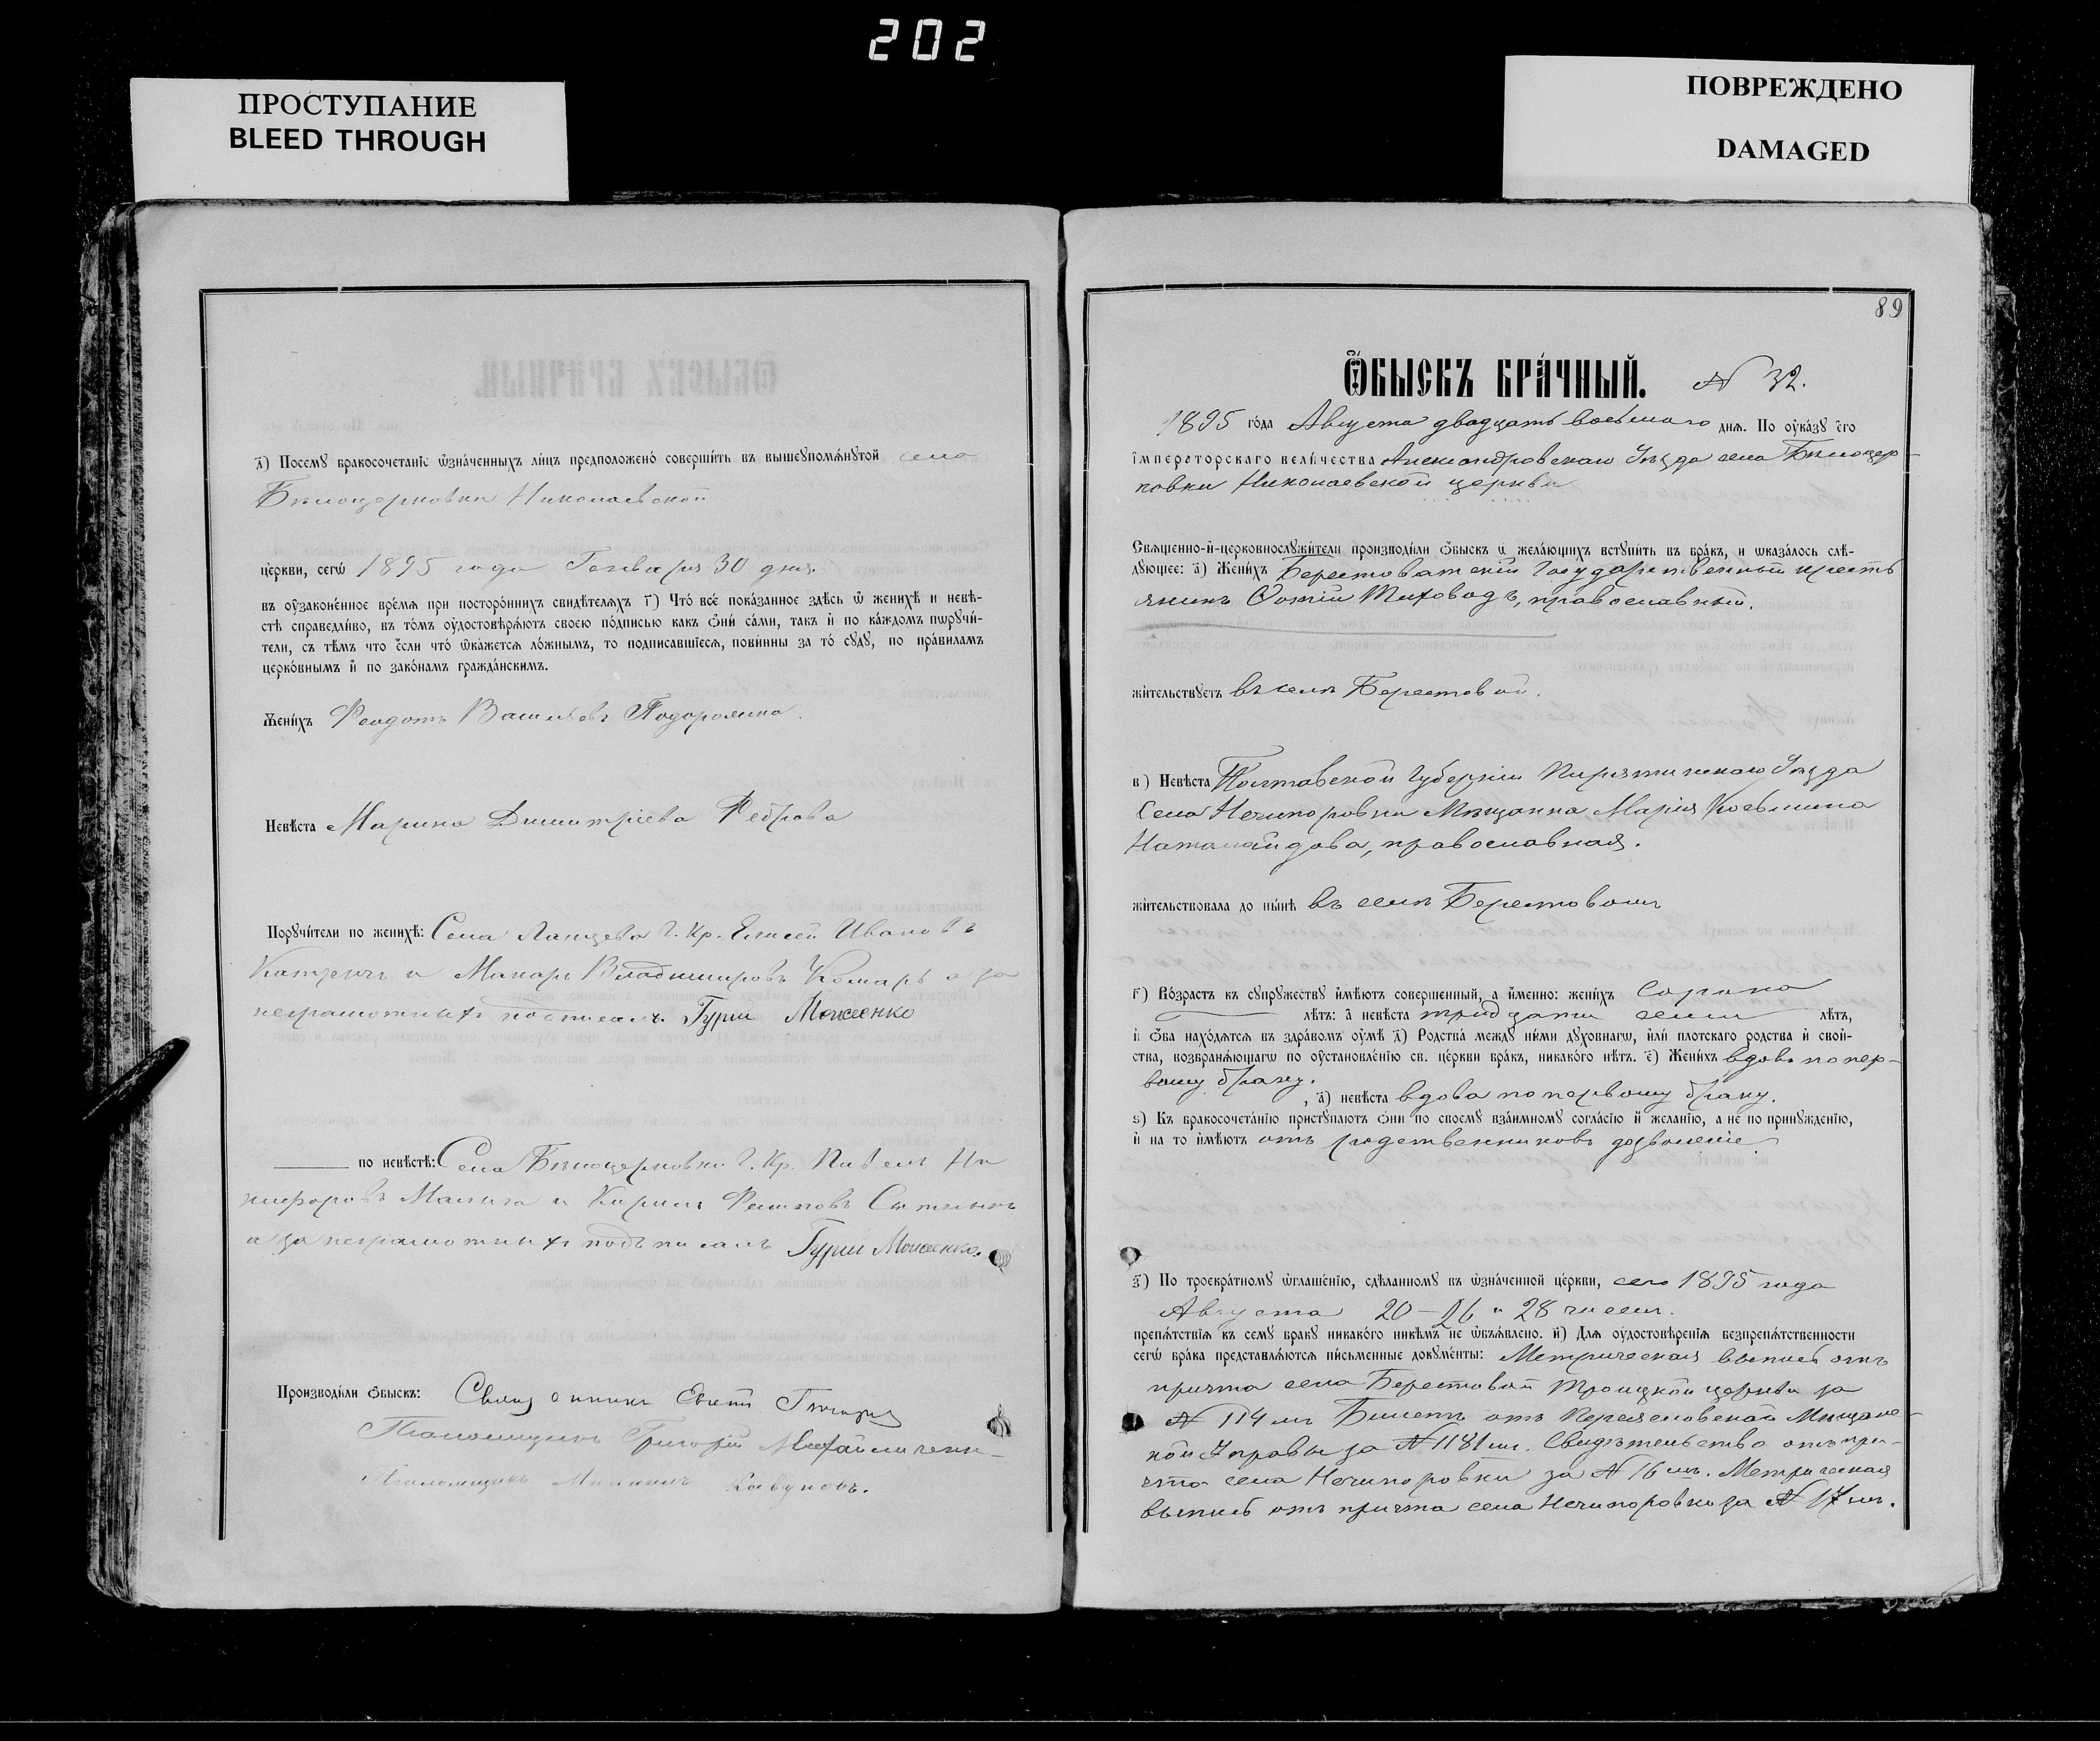 202
ПРОСТУПАНИЕ
BLEED THROUGH
ПОВРЕЖДЕНО
DAMAGED
д҃) Посемꙋ бракосочетанїе ѡзначенныхъ лицъ предположено совершить въ вышеꙋпомянꙋтой села
Бѣлоцерковки Николаевской
церкви, сегѡ 1895 года Генваря 30 дня.
въ ѹзаконенное время при постороннихъ свидѣтеляхъ г҃) Что все показанное здѣсь ѡ женихѣ и невѣ-
стѣ справедливо, въ томъ ѹдостовѣряютъ своею подписью какъ они сами, такъ и по каждомъ порꙋчи-
тели, съ тѣмъ что если что ѡкажется ложнымъ, то подписавшїеся, повинны за то сꙋдꙋ, по правиламъ
церковнымъ и по законамъ гражданскимъ.
Женихъ Феодотъ Васильевъ
Невѣста Марина Димитріева Реброва
Порꙋчители по женихѣ: Села Г. Кр. Елисей Ивановъ
и Макаръ Владиміровъ Комаръ а за
неграмотныхъ подписалъ Гурій Моисеенко
по невѣстѣ: Села Бѣлоцерковки Г. Кр. Павелъ Ни
кифоровъ и Кирилъ
а за неграмотныхъ подписалъ Гурій Моисеенко.
Производили обыскъ: Священникъ
Псаломщикъ Григорій
Псаломщикъ Кавуновъ.
89
Ѻбыскъ брачный. N 32.
1895 года Августа двадцать восьмого дня. По ѹказꙋ его
императорскаго величества Александровскаго Уѣзда села Бѣлоцер-
ковки Николаевской церкви
Священно-и-церковнослꙋжители производили обыскъ ѡ желающихъ встꙋпить въ бракъ, и ѡказалось слѣ-
дꙋющее: а҃) Женихъ Берестоватскій Государственный кресть
янинъ Фотій Тиховодъ, православный.
жительствꙋетъ въ селѣ Берестовой.
в) Невѣста Полтавской Губерніи Пирятинскаго Уѣзда
села Нечипоровки Мѣщанка Марія Косьмина
православная.
жительствовала до нынѣ въ селѣ Берестовомъ
г҃) Возрастъ къ сꙋпрꙋжествꙋ имѣютъ совершенный, а именно: женихъ сорока
лѣтъ: а невѣста тридцати семи лѣтъ,
и оба находятся въ здравомъ ѹмѣ д҃) Родства междꙋ ними дꙋховнагѡ, или плотскаго родства и свой-
ства, возбраняющагѡ по ѹстановленїю св. церкви бракъ, никакого нѣтъ. е҃) Женихъ вдовъ по пер-
вому браку.
, а҃) невѣста вдова по первому браку.
ѕ) Къ бракосочетанїю пристꙋпаютъ они по своемꙋ взаимномꙋ согласїю и желанїю, а не по принꙋжденїю,
и на то имѣютъ отъ родственниковъ дозволеніе
з҃) По троекратномꙋ ѡглашенїю, сдѣланномꙋ въ ѡзначенной церкви, сего 1895 года
Августа 20 – 26 и 28 числ.
препятствїя къ семꙋ бракꙋ никакого никѣмъ не ѡбъявлено. и҃) Для ѹдостовѣренїя безпрепятственности
сегѡ брака представляются письменные докꙋменты: Метрическая выпись отъ
причта села Берестовой Троицкой церкви за
N 114 мъ Билетъ отъ Переяславской Мѣщанс-
кой Управы за N 1181 мъ. Свидѣтельство отъ при-
чта села Нечипоровки за N 16 мъ. Метрическая
выпись отъ причта села Нечипоровки за N 17 мъ.